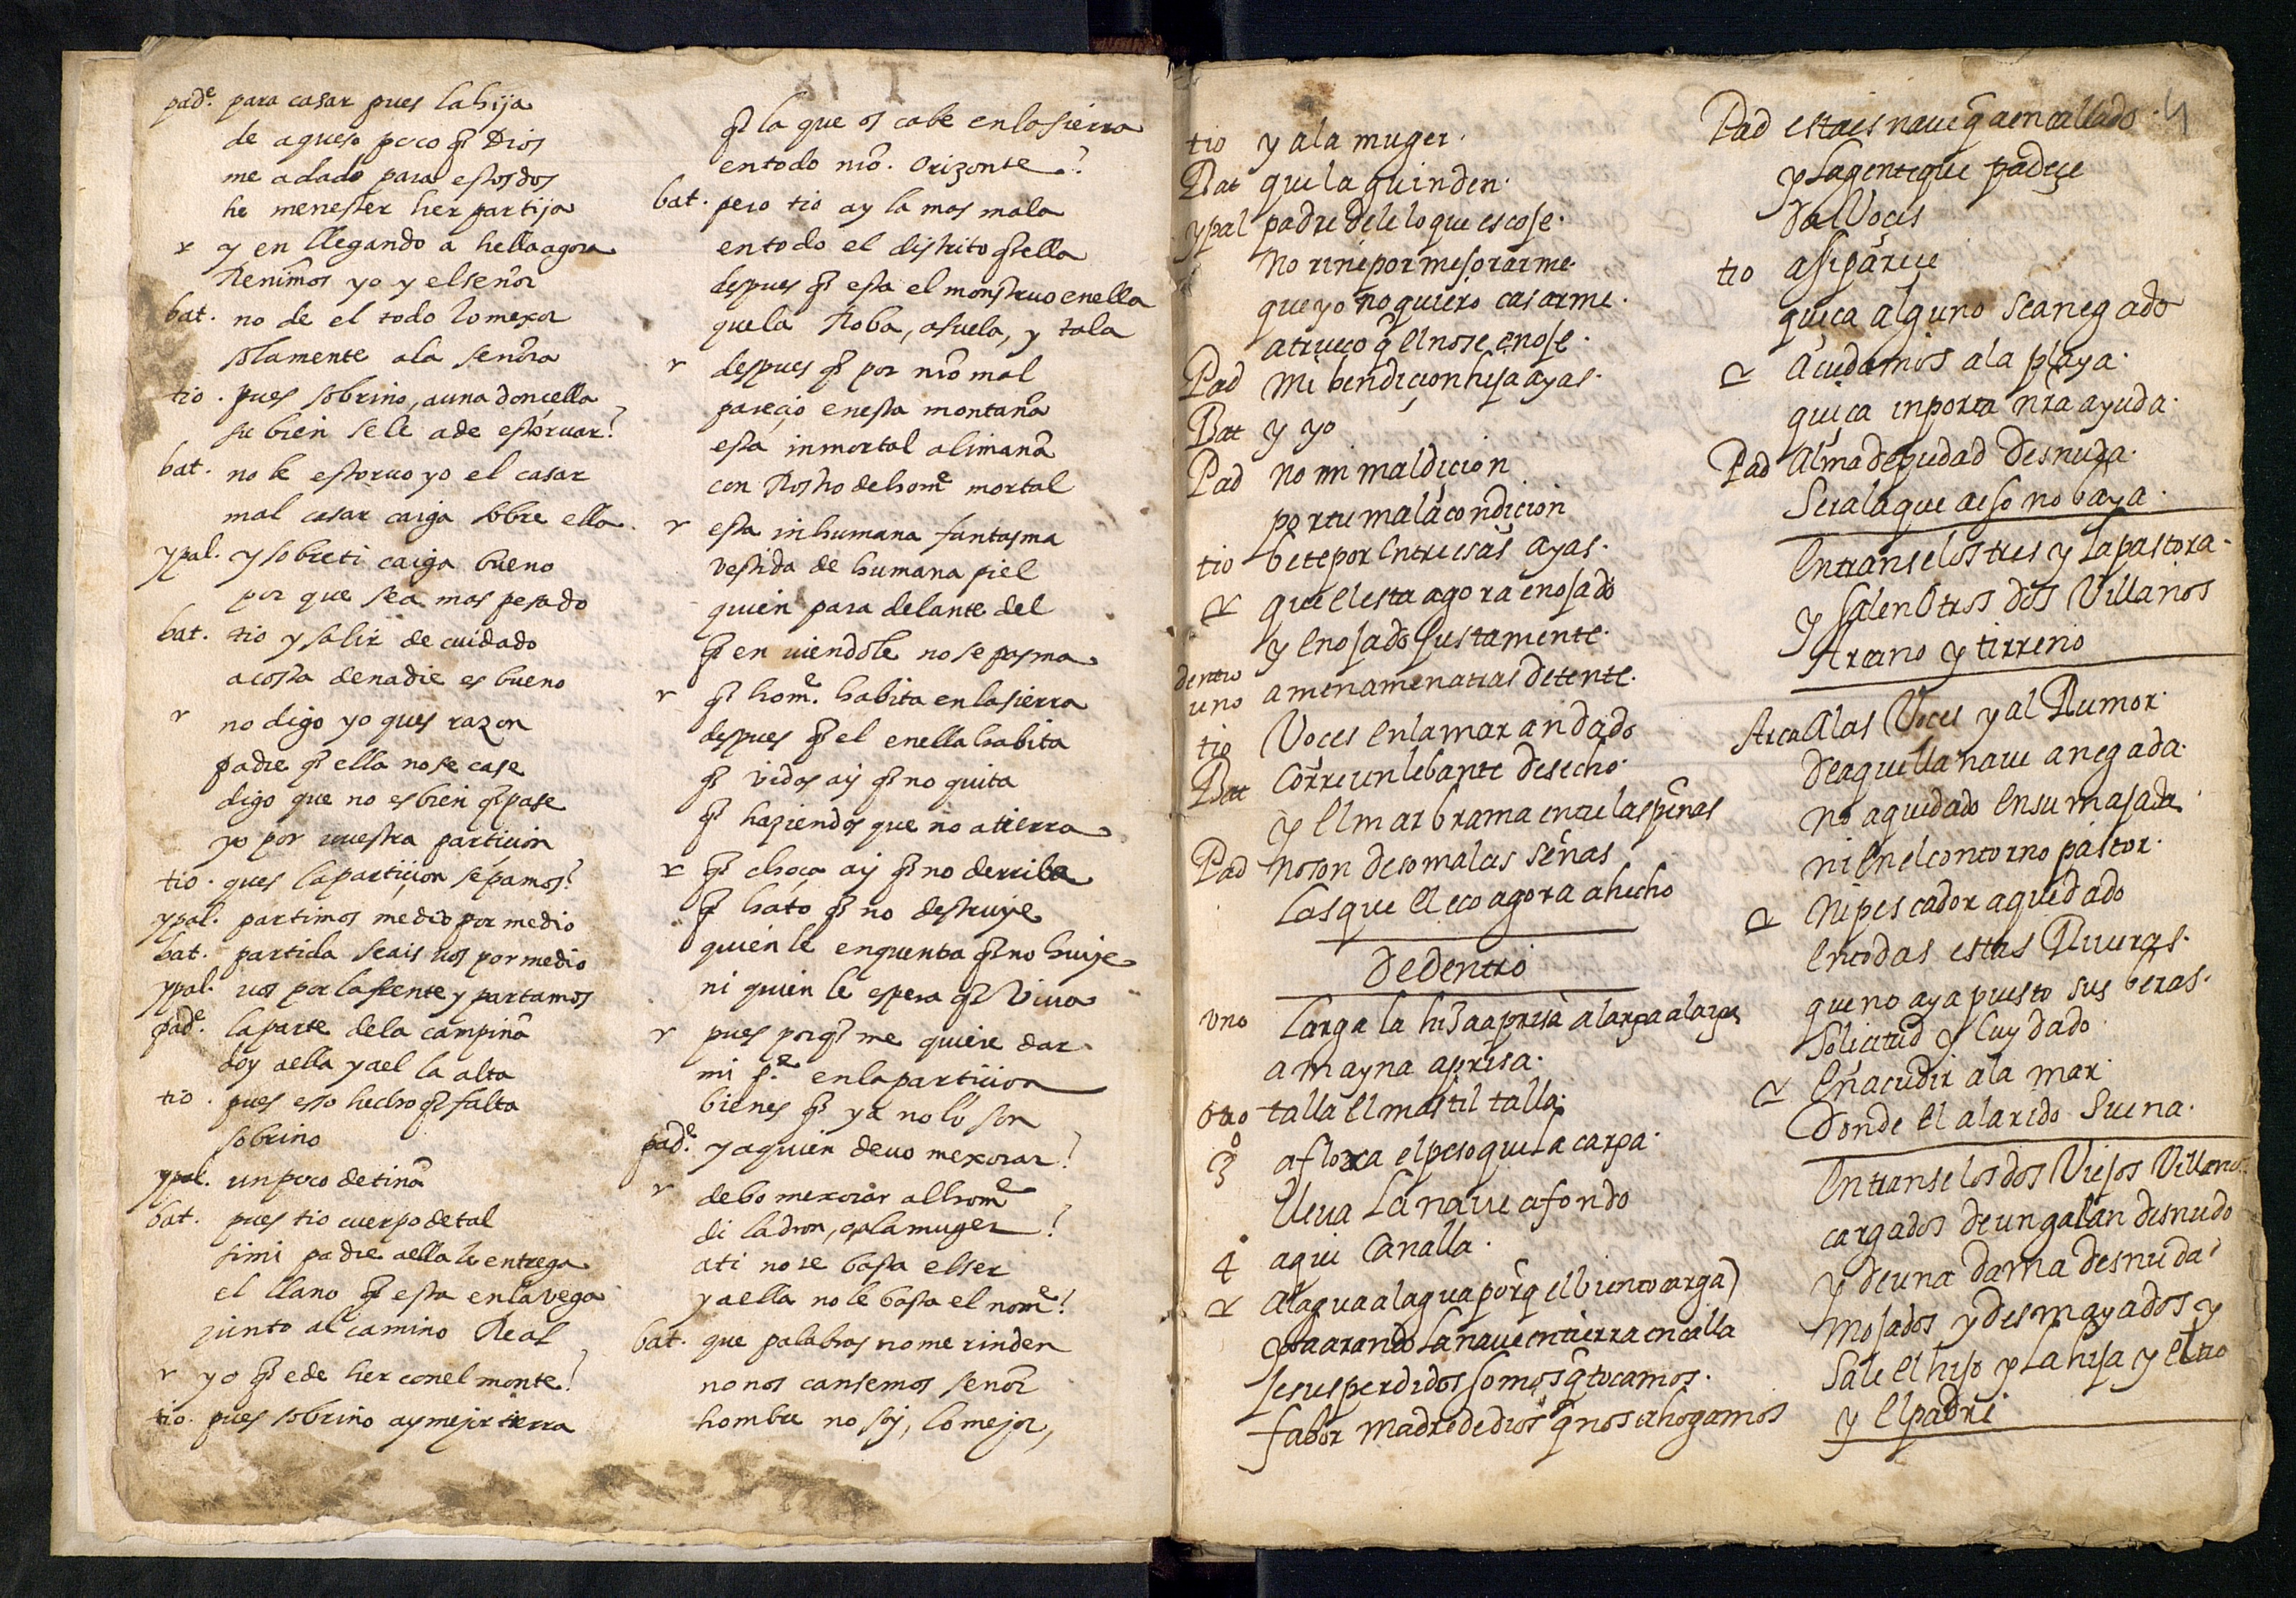 pad.e para casar pues la hija
de aqueso poco q̃ Dios
me a dado para estos dos
he menester her partija
r y en llegando a hella agora
Renimos yo y el señor
bat. no de el todo lo mexor
solamente a la señora
tio. pues sobrino, a una donçella
su bien se le a de estoruar?
bat. no le estoruo yo el casar
mal casar caiga sobre ella.
ypal. y sobre ti caiga bueno
por que sea mas pesado
bat. tio y salir de cuidado
a costa de nadie es bueno
r no digo yo ques razon
padre q̃ ella no se case
digo que no es bien q̃ pase
yo por vuestra particion
tio. ques la particion sepamos?
ypal. partimos medio por medio
bat. partida seais vos por medio
ypal. vos por la frente y partamos
pad.e la parte de la campiña
doy a ella y a el la alta
tio. pues esso hecho q̃ falta
sobrino
ypal. un poco de tiña
bat. pues tio cuerpo de tal
si mi padre a ella le entrega
el llano q̃ esta en la vega
junto al camino Real
r yo q̃ e de her con el monte?
tio. pues sobrino ay mejor tierra
q̃ la que os cabe en la sierra
en todo nr̃o. Orizonte?
bat. pero tio ay la mas mala
en todo el distrito q̃ ella
despues q̃ esta el monstruo en ella
que la Roba, asuela, y tala
r despues q̃ por nr̃o mal
pareçio en esta montaña
esta inmortal alimaña
con Rostro de hom.e mortal
r esta inhumana fantasma
vestida de humana piel
quien para delante del
q̃ en viendole no se pasma
r q̃ hom.e habita en la sierra
despues q̃ el en ella habita
q̃ vidas ay q̃ no quita
q̃ haziendas que no atierra
r q̃ choça ay q̃ no derriba
q̃ hato q̃ no destruye
quien le enquentra q̃ no huye
ni quien le espera q̃ viua
r pues porq̃ me quiere dar
mi p.e en la particion
bienes q̃ ya no lo son
pad.e y a quien deuo mexorar?
r debo mexorar al hom.e
di ladron, o a la muger?
a ti no te basta el ser
y a ella no le basta el nom.e?
bat. que palabras no me rinden
no nos cansemos señor
hombre no soy, lo mejor,
4
tio y a la muger.
Bat que la guinden.
ypal padre dele lo que escoje.
no riñe por mejorarme.
que yo no quiero casarme.
a trueco q̃ el no se enoje.
Pad mi bendicion hija ayas.
Bat y yo
Pad no mi maldicion
por tu mala condicion
tio bete por entre esas ayas.
R que el esta agora enojado
y enojado justamente.
dentro
uno amena mena tras detente.
tio Voces en la mar an dado
Bat Corre un lebante desecho.
y el mar brama entre las peñas
Pad no son de so malas señas
las que el eco agora a hecho
De dentro
uno larga la hiza aprisa alarga alarga
amayna aprisa.
otro talla el mastil talla.
3º afloxa el peso que la carga.
lleua la naue a fondo
4º aqui Canalla.
R al agua al agua porq̃ el biento carga)
esta arando la naue en tierra encalla
Jesus perdidos somos q̃ tocamos.
fabor madre de dios q̃ nos ahogamos
Pad esta es naue q̃ a encallado.
y la gente que padeçe
da Voces
tio assi pareçe
quiça alguno se a negado
R acudamos a la playa.
quiça inporta nr̃a ayuda.
Pad alma de piedad desnuda.
sera la que a eso no baya.
Entranse los tres y la pastora.
y salen otros dos Villanos
Arcano y tirreno
Arca A las Voces y al Rumor.
de aquella naue anegada.
no a quedado en su majada.
ni en el contorno pastor.
R ni pescador a quedado
en todas estas Riueras.
que no aya puesto sus beras.
solicitud y Cuydado
R en acudir a la mar.
donde el alarido suena.
Entranse los dos Viejos Villanos
cargados de un galan desnudo
y de una dama desnuda
mojados y desmayados y
sale el hijo y la hija y el tio
y el padre